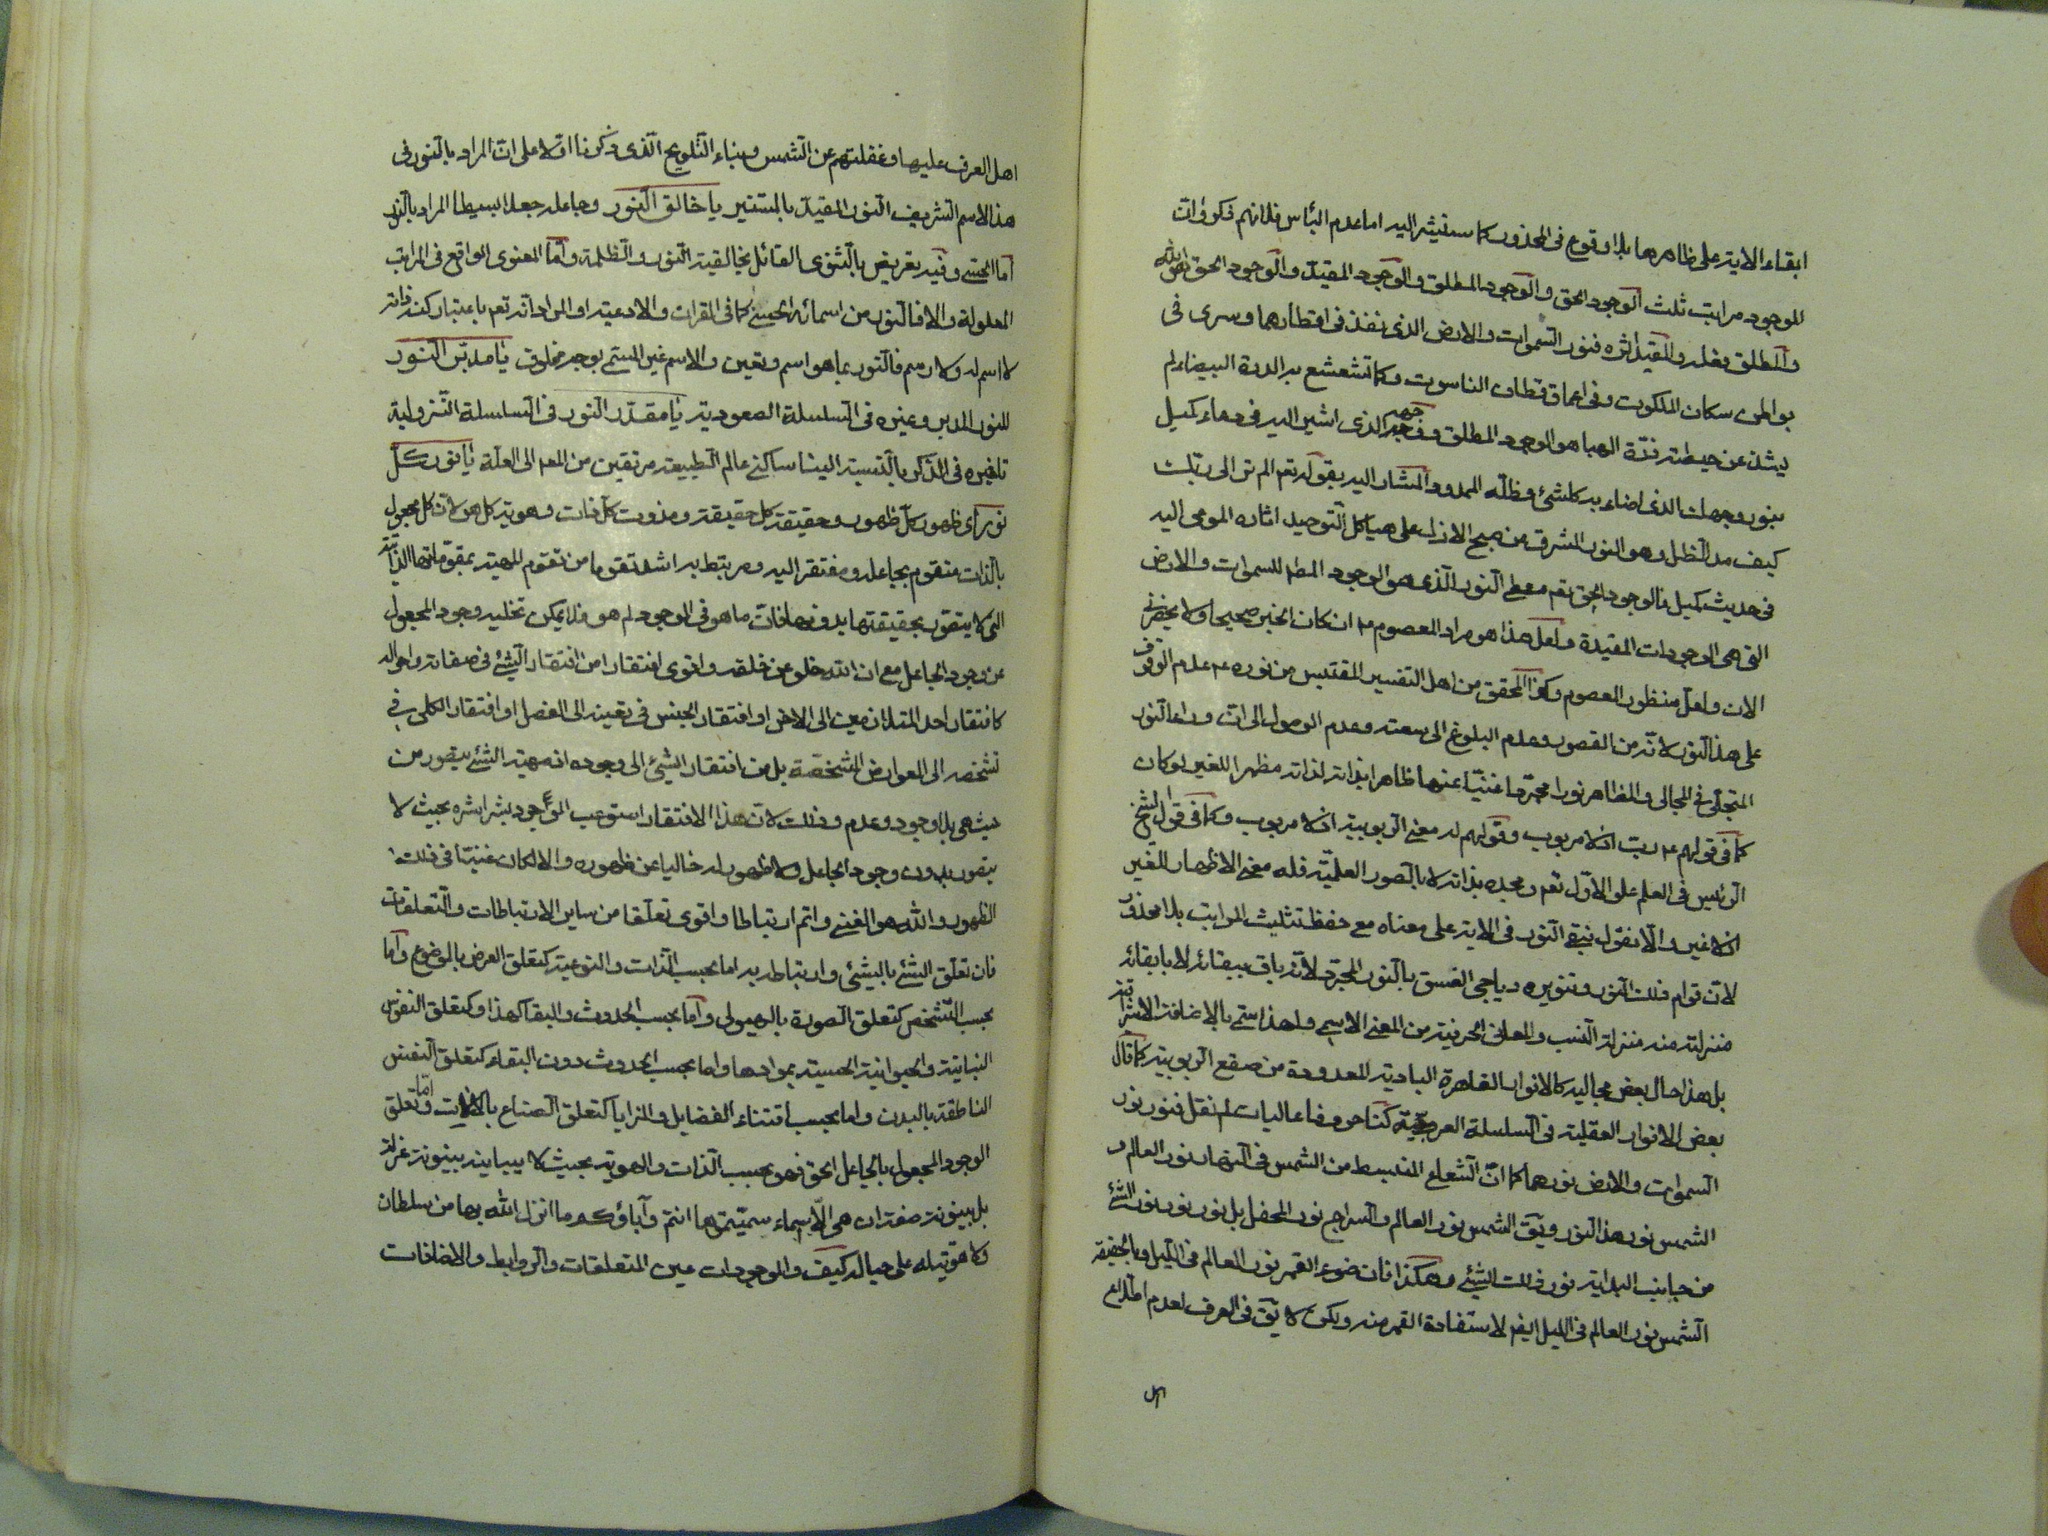 ابقاء الاية على ظاهرها بلا وقوع فى المحذور كما سنشير اليه اما عدم البأس فلانهم ذكروا ان
للوجود مراتب ثلث الوجود الحق والوجود المطلق والوجود المقيد والوجود الحق هو الله
والمطلق فعله والمقيد اثره فنور السموات والارض الذى نفذ فى اقطارهما وسرى فى
بواطن سكان الملكوت وفى اعماق قطان الناسوت وكما تشعشع به الدرة البيضاء لم
يشذ عن حيطته ذرة الهبا هو الوجود المطلق ووجهه الذى اشير اليه فى دعاء كميل
بنور وجهك الذى اضاء به كلشئ وظله الممدود المشار اليه بقوله تعم الم تر الى ربك
كيف مد الظل وهو النور المشرق من صبح الازل على هياكل التوحيد اثاره المومى اليه
فى حديث كميل فالوجود الحق تعم معطى النور الذى هو الوجود المط للسموات والارض
التى هى الوجودات المقيدة ولعل هذا هو مراد المعصوم ع ان كان الخبر صحيحا ولا يحضرنى
الان ولعل منظور المعصوم وكذا المحقق من اهل التفسير المقتبس من نوره ع عدم الوقوف
على هذا النور لانه من القصور وعدم البلوغ الى سعته وعدم الوصول الى ان وراء النور
المتجلى فى المجالى والمظاهر نورا مجردا غنيا عنها ظاهرا بذاته لذاته مظهرا للغير لو كان
كما فى قولهم ع رب اذ لا مربوب وقولهم له معنى الربوبية اذ لا مربوب وكما فى قول الشيخ
الرئيس فى العلم علو الاول تعم ومجده بذاته لا بالصور العلمية فله معنى الاظهار للغير
اذ لا غير والا نقول نبقى النور فى الاية على معناه مع حفظ تثليث المراتب بلا محذور
لان قوام ذلك النور وتنويره دياجى الغسق بالنور المجرد لانه باق ببقائه لا بابقائه
منزلته منه منزلة النسب والمعانى الحرفية من المعنى الاسمى ولهذا سمى بالاضافة الاشراقية
بل هذا حال بعض مجاليه كالانوار القاهرة البادية المعدودة من صقع الربوبية كما قال
بعض الانوار العقلية فى السلسلة العروجية كنا حروفا عاليات لم نقل فنور نور
السموات والارض نورهما كما ان الشعاع المنبسط من الشمس فى النهار نور العالم و
الشمس نور هذا النور ويق الشمس نور العالم والسراج نور المحفل بل نور نور نور الشئ
من جانب البداية نور ذلك الشئ وهكذا فان ضوء القمر نور العالم فى الليل وبالحقيقة
الشمس نور العالم فى الليل ايض لاستفادة القمر منه ولكن لا يق فى العرف لعدم اطلاع
اهل
اهل العرف عليها وغفلتهم عن الشمس وبناء التلويح الذى ذكرنا اولا على ان المراد بالنور فى
هذا الاسم الشريف النور المقيد بالمستنير يا خالق النور وجاعله جعلا بسيطا المراد بالنور
اما الحسى وفيه تعريض بالثنوى القائل بخالقية النور والظلمة واما المعنوى الواقع فى المراتب
المعلولة والا فالنور من اسمائه الحسنى كما فى القران والادعية او المراد انه تعم باعتبار كنه ذاته
لا اسم له ولا رسم فالنور بما هو اسم وتعين والاسم غير المسمى بوجه مخلوق يا مدبر النور
للنور المدبر وغيره فى السلسلة الصعودية يا مقدر النور فى السلسلة النزولية
تاخيره فى الذكر بالنسبة الينا ساكنى عالم الطبيعة مرتقين من المعل الى العلة يا نور كل
نور اى ظهور كل ظهور وحقيقة كل حقيقة ومذوت كل ذات وهوية كل هو لان كل مجعول
بالذات متقوم بجاعله ومفتقر اليه ومرتبط به اشد تقوما من تقوم المهية بمقوماتها الذاتية
التى لا يتقرر بحقيقتها بدونها فان ما هو فى الوجود لم هو فلا يمكن تخليه وجود المجعول
عن وجود الجاعل مع ان الله خلو عن خلقه واقوى افتقارا من افتقار الشئ فى صفاته واحواله
كافتقار احد المتلازمين الى الاخر او افتقار الجنس فى تعينه الى الفصل او افتقار الكلى فى
تشخصه الى العوارض المشخصة بل من افتقار الشئ الى وجوده اذ مهية الشئ يتصور من
حيث هى بلا وجود وعدم وذلك لان هذا الافتقار استوعب الموجود بشراشره بحيث لا
يتصور بدون وجود الجاعل ولا ظهور له خاليا عن ظهوره والا لكان غنيا فى ذلك
الظهور والله هو الغنى واتم ارتباطا واقوى تعلقا من ساير الارتباطات والتعلقات
فان تعلق الشئ بالشئ وارتباطه به اما بحسب الذات والنوعية كتعلق العرض بالموضوع واما
بحسب التشخص كتعلق الصورة بالهيولى واما بحسب الحدوث والبقا كهذا وكتعلق النفوس
النباتية والحيوانية الحسية بموادها واما بحسب الحدوث دون البقاء كتعلق النفس
الناطقة بالبدن واما بحسب اقتناء الفضايل والمزايا كتعلق الصناع بالالات واما تعلق
الوجود المجعول بالجاعل الحق فهو بحسب الذات والهوية بحيث لا يباينه بينونة عزلة
بل بينونة صفة ان هى الا اسماء سميتموها انتم وآباؤكم ما انزل الله بها من سلطان
ولا هوية له على حياله كيف والموجودات عين المتعلقات والروابط والاضافات